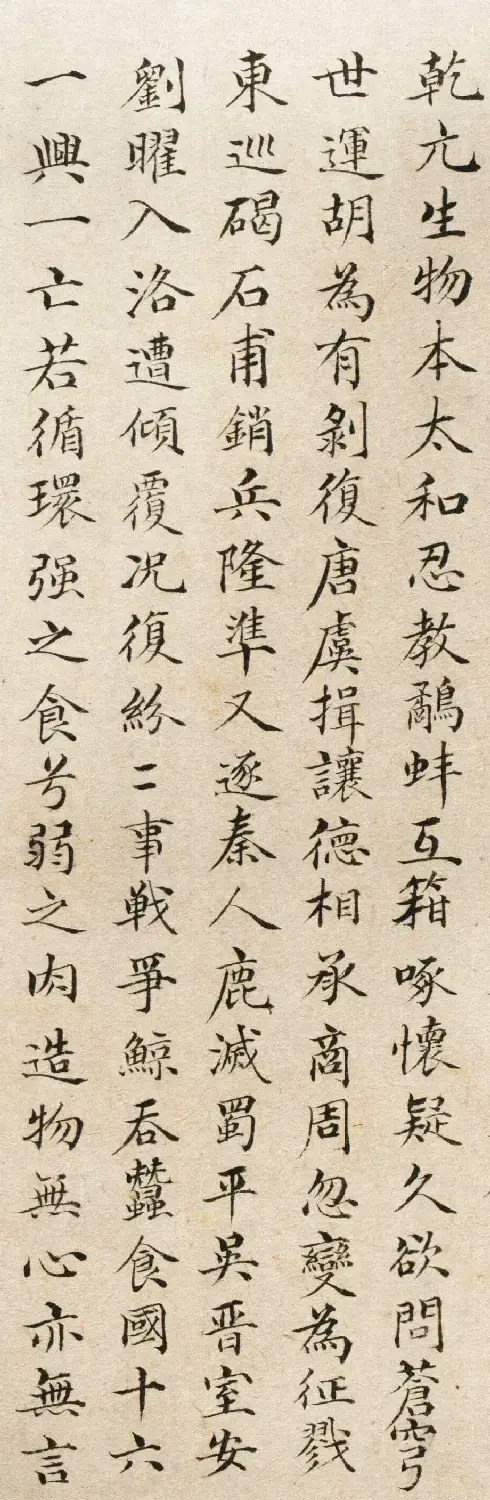 乾亢生物本太和忍教鷸蚌互籍啄懷疑久欲問蒼穹
世運胡為有剝復唐虞揖讓德相承商周忽變為征戮
東巡碣石甫銷兵隆準又逐秦人鹿滅蜀平吳晋室安
劉曜入洛遭傾覆况復紛〻事戦爭鯨吞蠶食國十六
一興一亡若循環强之食兮弱之肉造物無心亦無言